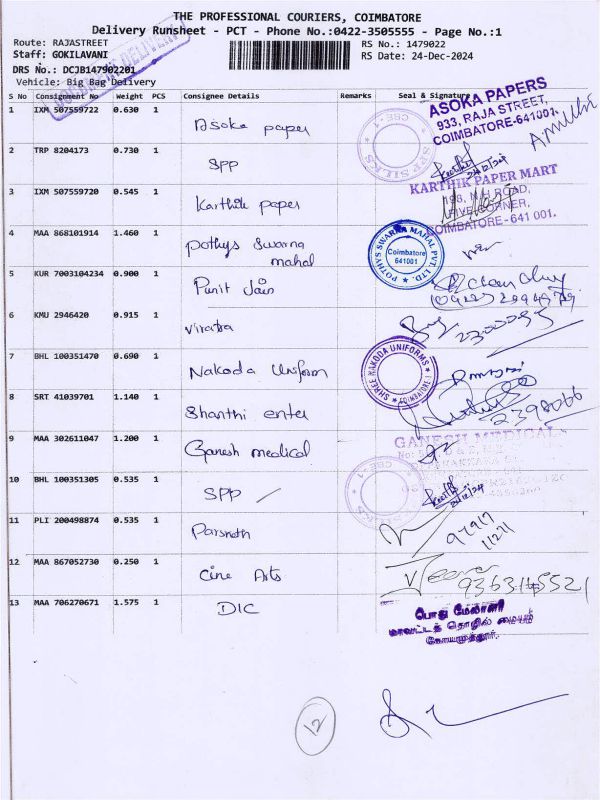 THE PROFESSIONAL COURIERS, COIMBATORE
Delivery Runsheet - PCT - Phone No.:0422-3505555 - Page No.:1
Route: RAJASTREET
RS No.: 1479022
Staff: GOKILAVANI
RS Date: 24-Dec-2024
DRS No.: DCJB147902201
Vehicle: Big Bag Delivery
S No Consignment No Weight PCS Consignee Details Remarks Seal & Signature
1 IXM 507559722 0.630 1 Asoka paper
ASOKA PAPERS
933, RAJA STREET,
COIMBATORE-641001.
2 TRP 8204173 0.730 1 SPP
SPP SILKS
CBE-1
24/12/24
3 IXM 507559720 0.545 1 Karthik paper
KARTHIK PAPER MART
198, N.H ROAD,
FIVE CORNER,
COIMBATORE - 641 001.
4 MAA 868101914 1.460 1 pothys Swarna
mahal
POTHYS SWARNA MAHAL PVT. LTD.
Coimbatore
641001
5 KUR 7003104234 0.900 1 Punit Jain
6 KMU 2946420 0.915 1 Viratra
2300095
7 BHL 100351470 0.690 1 Nakoda Uniform
SHREE NAKODA UNIFORMS
COIMBATORE-1
8 SRT 41039701 1.140 1 Shanthi enter
2398066
9 MAA 302611047 1.200 1 Ganesh medical
GANESH MEDICAL
10 BHL 100351305 0.535 1 SPP
CBE-1
24/12/24
11 PLI 200498874 0.535 1 Parsnath
97917
11271
12 MAA 867052730 0.250 1 Cine Arts
9363145521
13 MAA 706270671 1.575 1 DIC
பொது மேலாளர்
மாவட்டத் தொழில் மையம்
கோயமுத்தூர்.
12